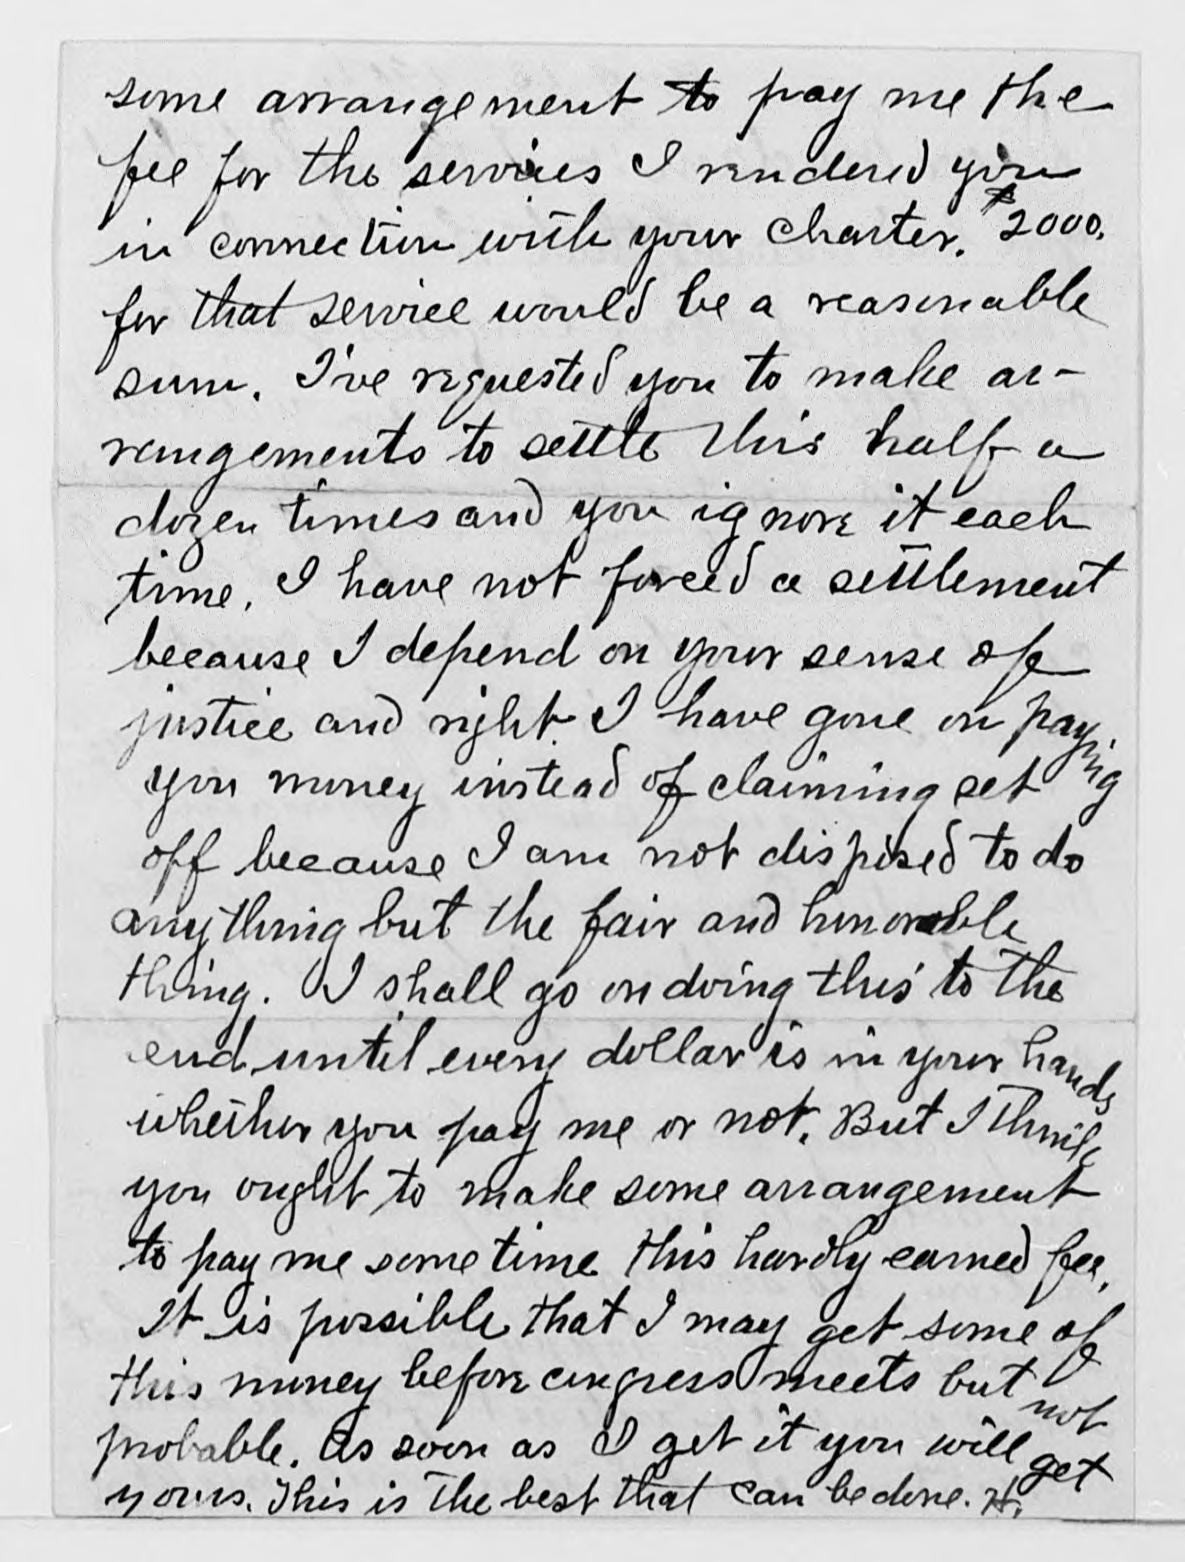 some arrangement to pay me the
fee for the services I rendered you
in connection with your charter. $2000.
for that service would be a reasonable
sum. I've requested you to make ar-
rangements to settle this half a
dozen times and you ignore it each
time. I have not forced a settlement
because I depend on your sense of
justice and right. I have gone on paying
you money instead of claiming set
off because I am not disposed to do
anything but the fair and honorable
thing. I shall go on doing this to the
end until every dollar is in your hands
whether you pay me or not. But I think
you ought to make some arrangement
to pay me some time this hardly earned fee.
It is possible that I may get some of
this money before congress meets but not
probable. As soon as I get it you will get
yours. This is the best that can be done. H.